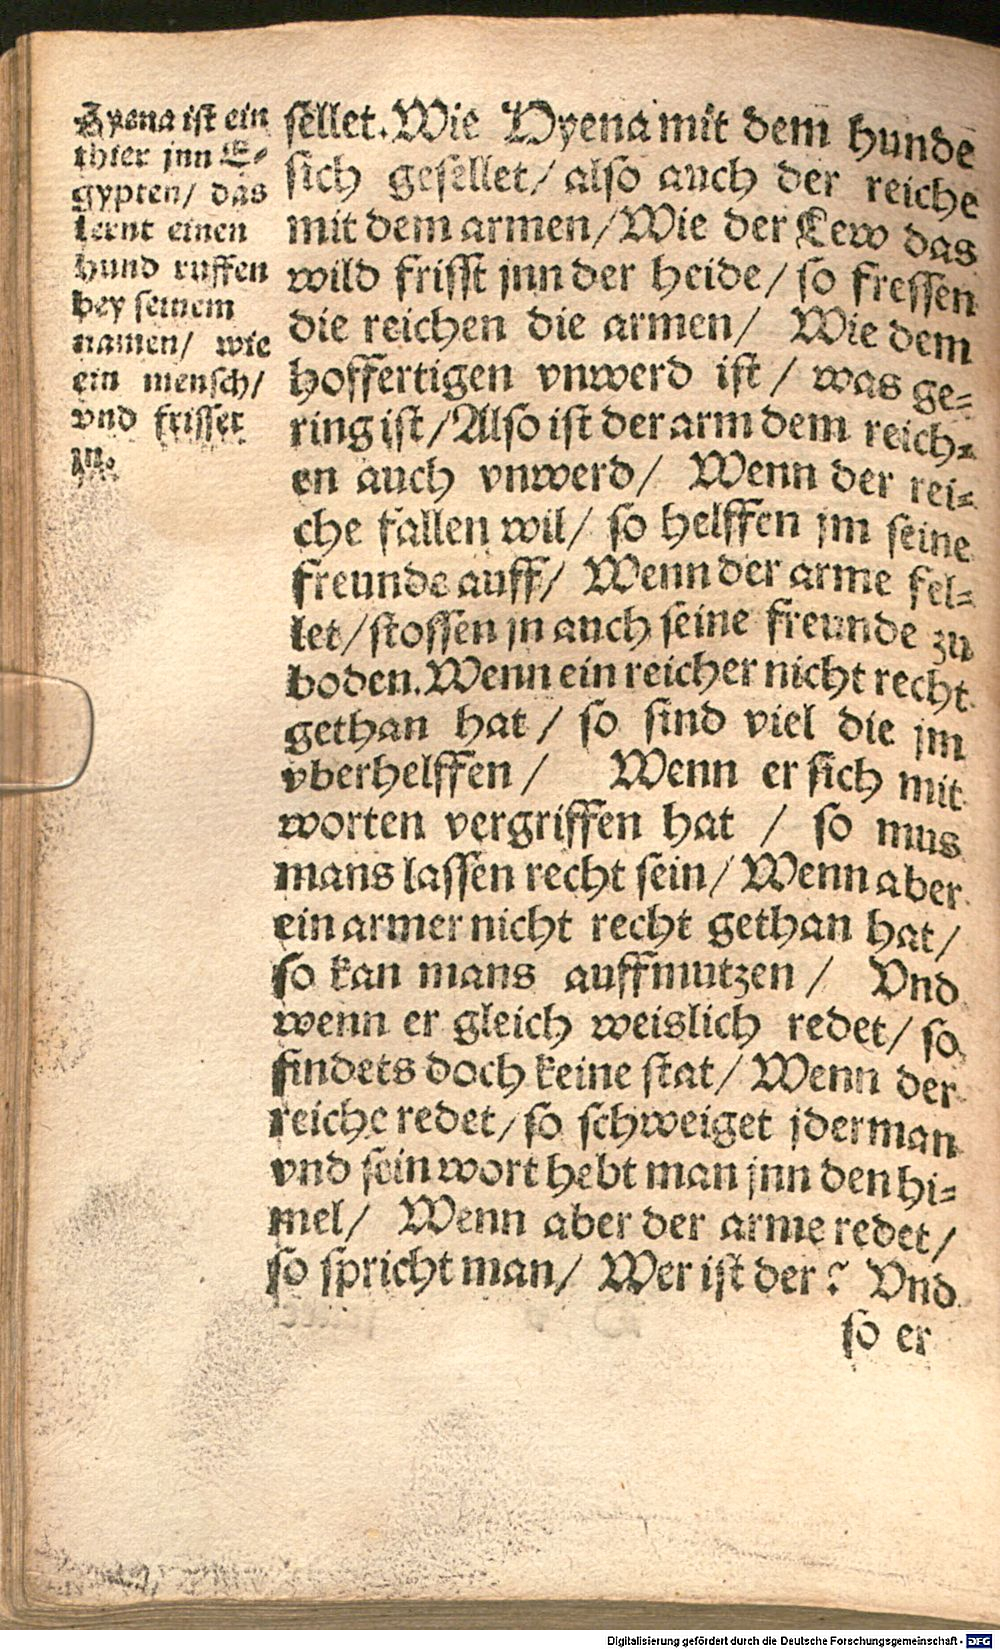 Hyena ist ein
thier jnn E⸗
gypten/ das
lernt einen
hund ruffen
bey seinem
namen/ wie
ein mensch/
vnd frisset
jn.
sellet. Wie Hyena mit dem hunde
sich gesellet/ also auch der reiche
mit dem armen/ Wie der Lew das
wild frisst jnn der heide/ so fressen
die reichen die armen/ Wie dem
hoffertigen vnwerd ist / was ge⸗
ring ist/ Also ist der arm dem reich⸗
en auch vnwerd/ Wenn der rei⸗
che fallen wil/ so helffen jm seine
freunde auff/ Wenn der arme fel⸗
let/ stossen jn auch seine freunde zu
boden. Wenn ein reicher nicht recht
gethan hat / so sind viel die jm
vberhelffen / Wenn er sich mit
worten vergriffen hat / so mus
mans lassen recht sein/ Wenn aber
ein armer nicht recht gethan hat/
so kan mans auffmutzen / Vnd
wenn er gleich weislich redet/ so
findets doch keine stat/ Wenn der
reiche redet/ so schweiget jderman
vnd sein wort hebt man jnn den hi⸗
mel/ Wenn aber der arme redet/
so spricht man/ Wer ist der? Vnd
so er
Digitalisierung gefördert durch die Deutsche Forschungsgemeinschaft - DFG